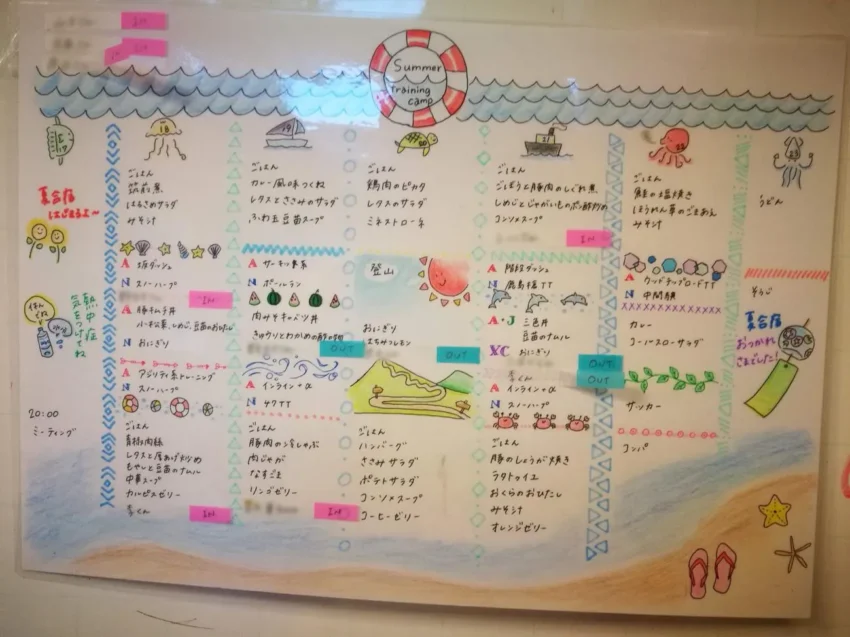 Summer
training
camp
17
夏合宿
はじまるよ〜
熱中症
気をつけてね
20:00
ミーティング
18
ごはん
筑前煮
はるさめサラダ
みそ汁
A 坂ダッシュ
N スノーハープ
IN
A 豚キムチ丼
N おにぎり
A アジリティ系トレーニング
N スノーハープ
ごはん
青椒肉絲
レタスと厚あげ炒め
もやしと豆苗のナムル
中華スープ
カルピスゼリー
IN
19
ごはん
カレー風味つくね
レタスとささみのサラダ
ふわ玉豆苗スープ
A サーキット系
N ポールラン
肉みそキャベツ丼
きゅうりとわかめの酢の物
OUT
A インライン+α
ごはん
豚肉の冷しゃぶ
肉じゃが
なすごま
リンゴゼリー
IN
20
ごはん
鶏肉のピカタ
レタスのサラダ
ミネストローネ
登山
おにぎり
はちみつレモン
OUT
ごはん
ハンバーグ
ささみサラダ
ポテトサラダ
コンソメスープ
コーヒーゼリー
21
ごはん
ごぼうと豚肉のしぐれ煮
コンソメスープ
IN
A 階段ダッシュ
N 鹿島槍TT
A・J 三色丼
豆苗のナムル
XC おにぎり
OUT
OUT
A インライン+α
N スノーハープ
ごはん
豚のしょうが焼き
ラタトゥイユ
おくらのおひたし
みそ汁
オレンジゼリー
22
ごはん
鮭の塩焼き
ほうれん草のごまあえ
みそ汁
A ウッドチップロードTT
カレー
コールスローサラダ
サッカー
コンパ
23
うどん
そうじ
夏合宿
おつかれ
さまでした!